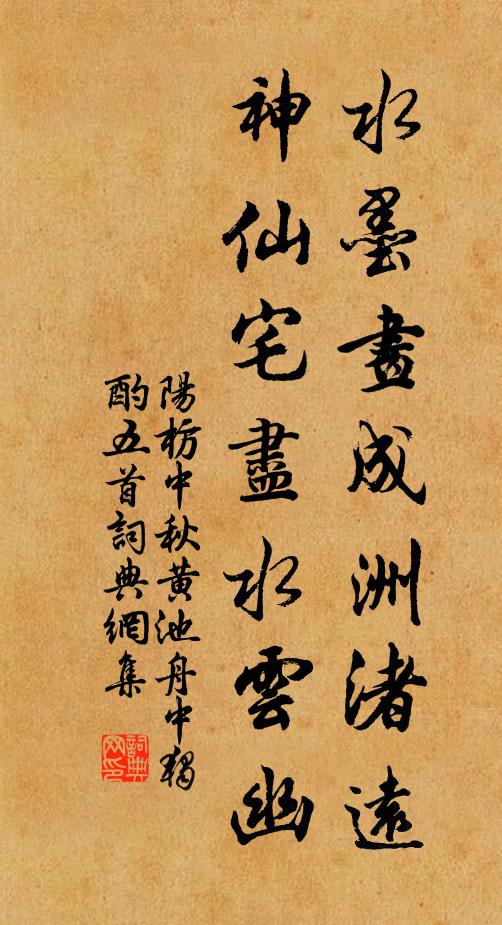 水墨畫成洲渚遠
神仙宅盡水雲幽
陽枋中秋黃池舟中獨
酌五首詞典網集
詞典
网印